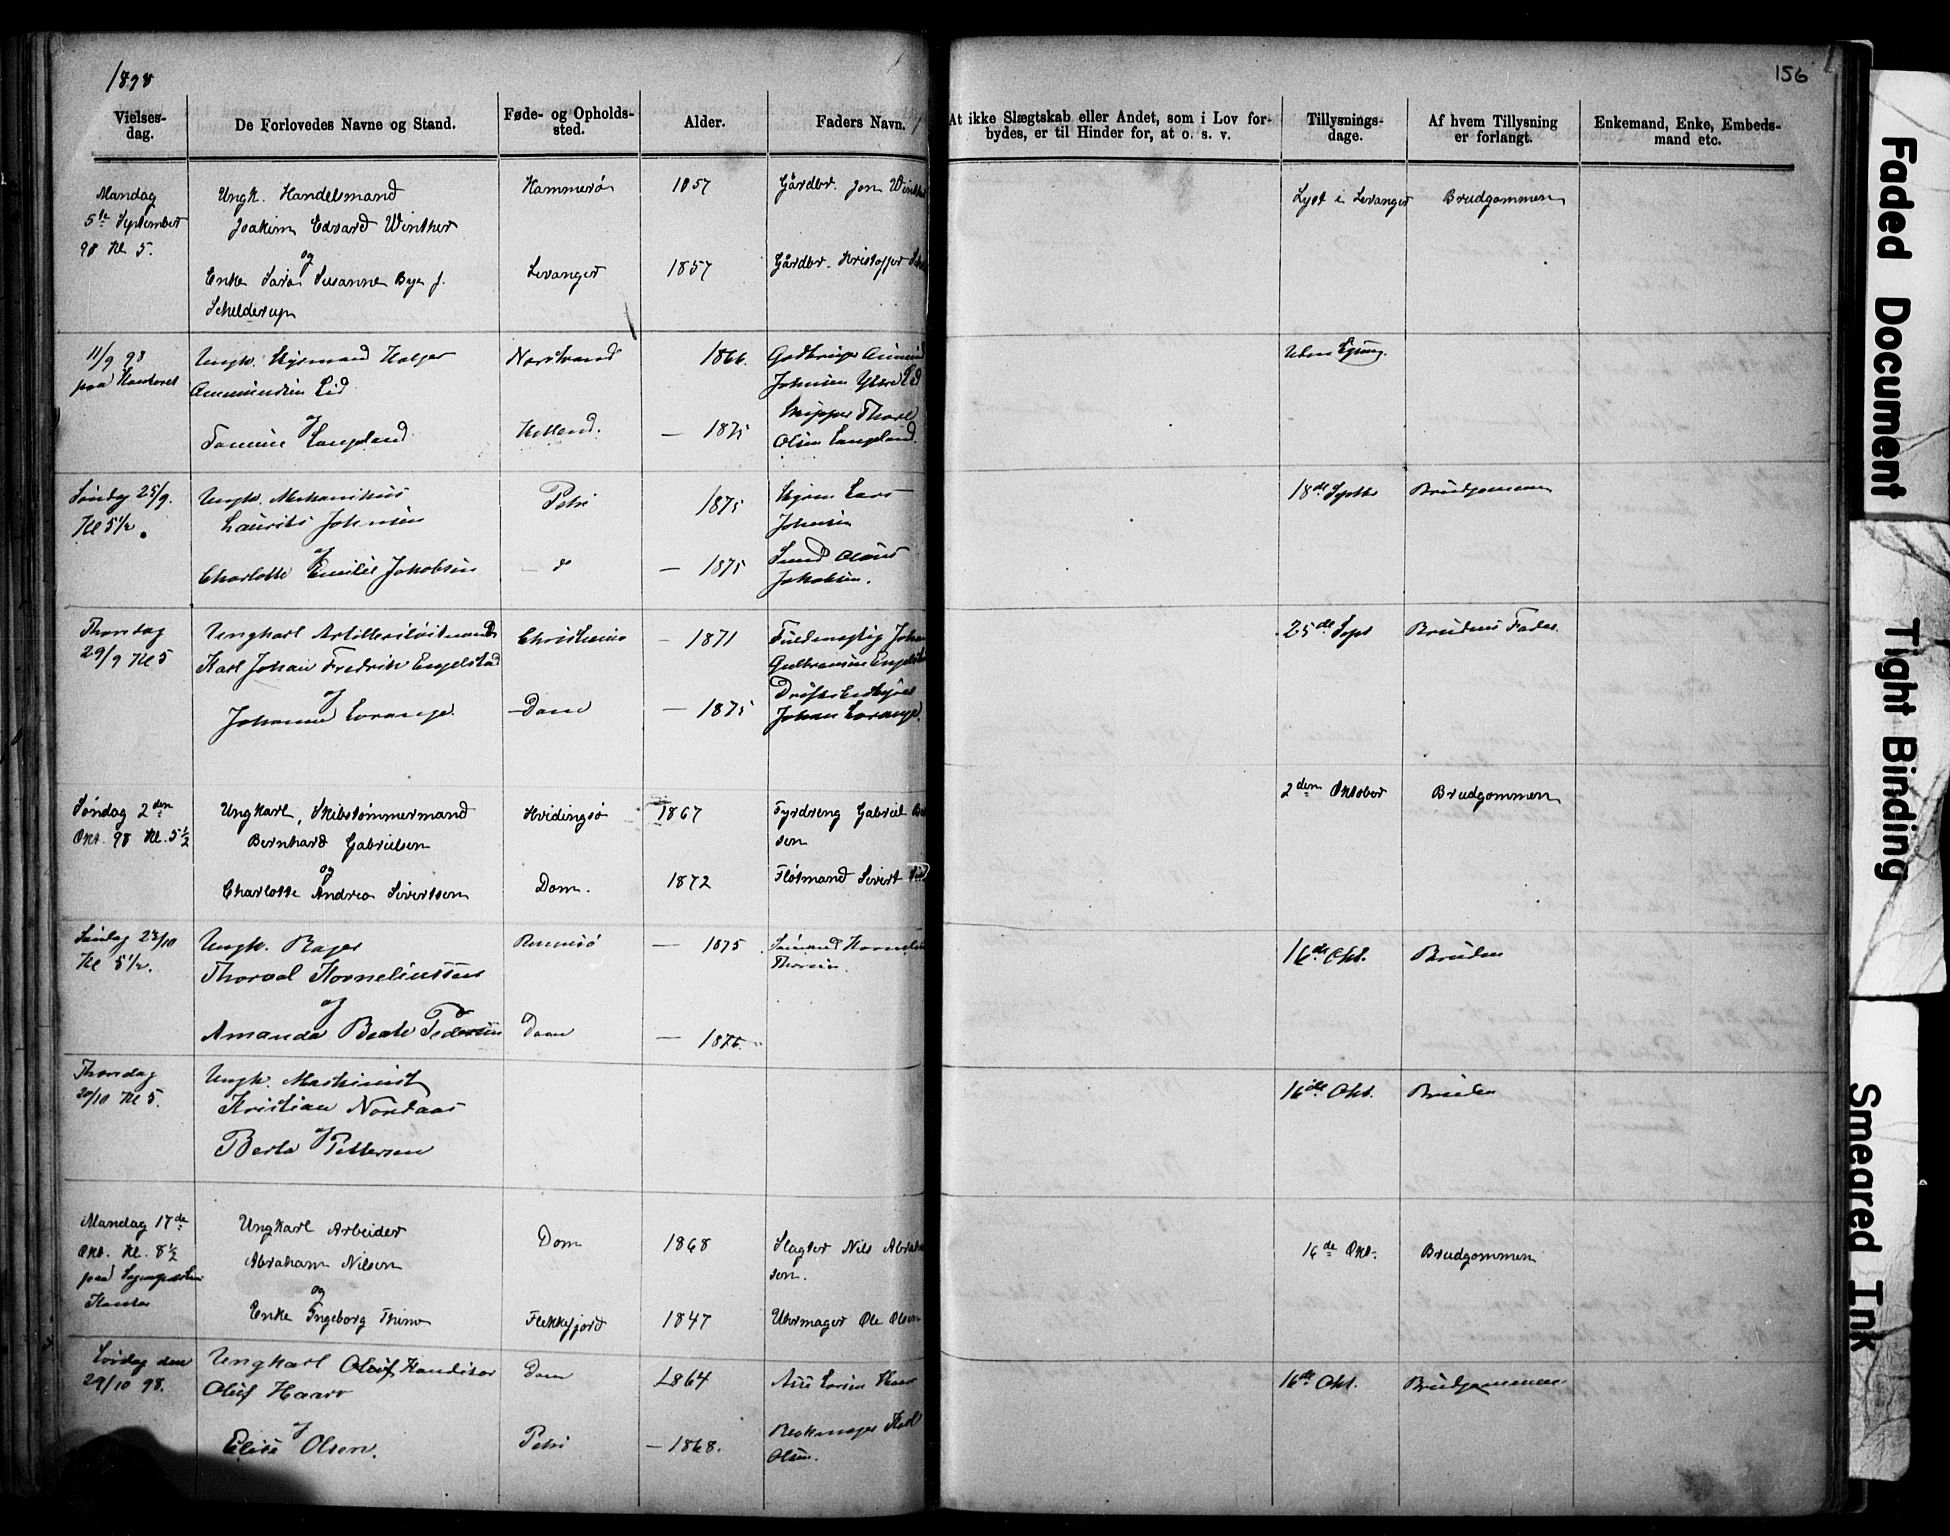 1898
156
Vielses-
dag.
De Forlovedes Navne og Stand.
Føde- og Opholds-
sted.
Alder.
Faders Navn.
At ikke Slægtskab eller Andet, som i Lov for-
bydes, er til Hinder for, at o. s. v.
Tillysnings-
dage.
Af hvem Tillysning
er forlangt.
Enkemand, Enke, Embeds-
mand etc.
Mandag
5te September
98 Kl 5.
Ungk. Handelsmand
Joakim Edvard Winther
og
Enke Sara Susanne Bye f.
Schelderup
Hammerø
Levanger
1857
1857
Gårdbr. Jon
Gårdbr. Kristoffer
Lyst i Levanger
Brudgommen
11/9 98
paa Kontoret
Ungk. Styrmand Holger
Ammundsen Eid
og
Langeland
Narstrand
1866.
— 1875
Johnsen
Skipper
Olsen Langeland.
Uden
Søndag 25/9.
Kl 5 1/2.
Ungk. Mekanikus
Laurits Johnsen
og
Charlotte Emilie Jakobsen
Petri
— do
1875
— 1875
Lars
Johnsen
Jakobsen.
18de Septbr
Brudgommen
Thorsdag
29/9 Kl 5
Ungkarl Artilleriløitnand
Karl Johan Fredrik Engelstad
og
Johanne Lorange.
Christiania
— Dom
— 1871
— 1875
Fuldmægtig Johan
Gulbransen
Johan Lorange.
25de Sept
Brudens Fader.
Søndag 2den
Okt. 98 Kl. 5 1/2
Ungkarl, Skibstømmermand
Bernhard Gabrielsen
og
Charlotte Andrea Sivertsen
Hvidingsø
Dom.
1867
1872
Fyrdreng Gabriel
sen
Flotmand Sivert
2den Oktober
Brudgommen
Søndag 23/10
Kl 5 1/2.
Ungk. Bager
Thorval Korneliussen
og
Amanda Beate Pedersen
Rennesø
Dom
— 1875
— 1876.
Sømand
16de Okt.
Bruden
Thorsdag
20/10 Kl 5.
Ungk. Maskinist
Kristian Nordaas
og
Berta Pettersen
16de Okt.
Bruden
Mandag 17de
Okt. Kl. 8 1/2
paa
Ungkarl Arbeider
Abraham Nilsen
og
Enke Ingeborg Thime
Dom
Flekkefjord
1868
1847
Slagter Nils
sen.
Uhrmager Ole Olsen
16de Okt.
Brudgommen
Lørdag den
29/10 98.
Ungkarl Oluf Konditor
Oluf Haarr
og
Elise Olsen.
Dom
Petri
1864
— 1868.
Olsen.
16de Okt.
Brudgommen
Faded Document
Tight Binding
Smeared Ink